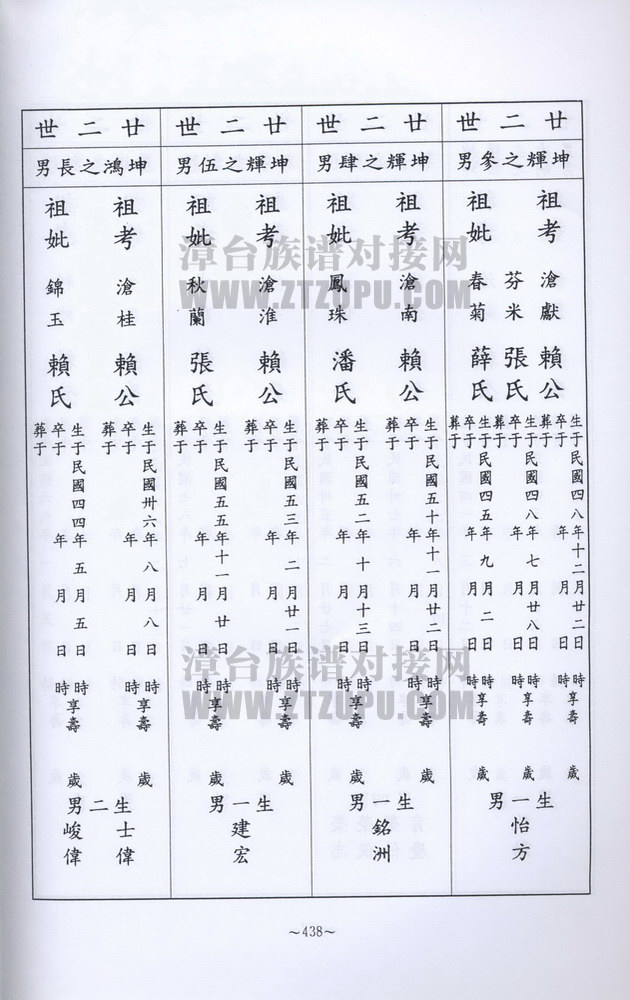 廿二世
坤輝之參男
祖考 滄獻 賴公
生于民國四八年十二月廿二日 時享壽 歲
卒于 年 月 日 時
葬于
祖妣 芬米 張氏
生于民國四八年七月廿八日 時享壽 歲
卒于 年 月 日 時
葬于
春菊 薛氏
生于民國四五年九月二日 時享壽 歲
卒于 年 月 日 時
葬于
生一男
怡方
廿二世
坤輝之肆男
祖考 滄南 賴公
生于民國五十年十一月廿二日 時享壽 歲
卒于 年 月 日 時
葬于
祖妣 鳳珠 潘氏
生于民國五二年十月十三日 時享壽 歲
卒于 年 月 日 時
葬于
生一男
銘洲
廿二世
坤輝之伍男
祖考 滄淮 賴公
生于民國五三年二月廿一日 時享壽 歲
卒于 年 月 日 時
葬于
祖妣 秋蘭 張氏
生于民國五五年十一月廿日 時享壽 歲
卒于 年 月 日 時
葬于
生一男
建宏
廿二世
坤鴻之長男
祖考 滄桂 賴公
生于民國卅六年八月八日 時享壽 歲
卒于 年 月 日 時
葬于
祖妣 錦玉 賴氏
生于民國四四年五月五日 時享壽 歲
卒于 年 月 日 時
葬于
生二男
士偉
峻偉
~438~
漳台族谱对接网
WWW.ZTZUPU.COM
漳台族谱对接网
WWW.ZTZUPU.COM